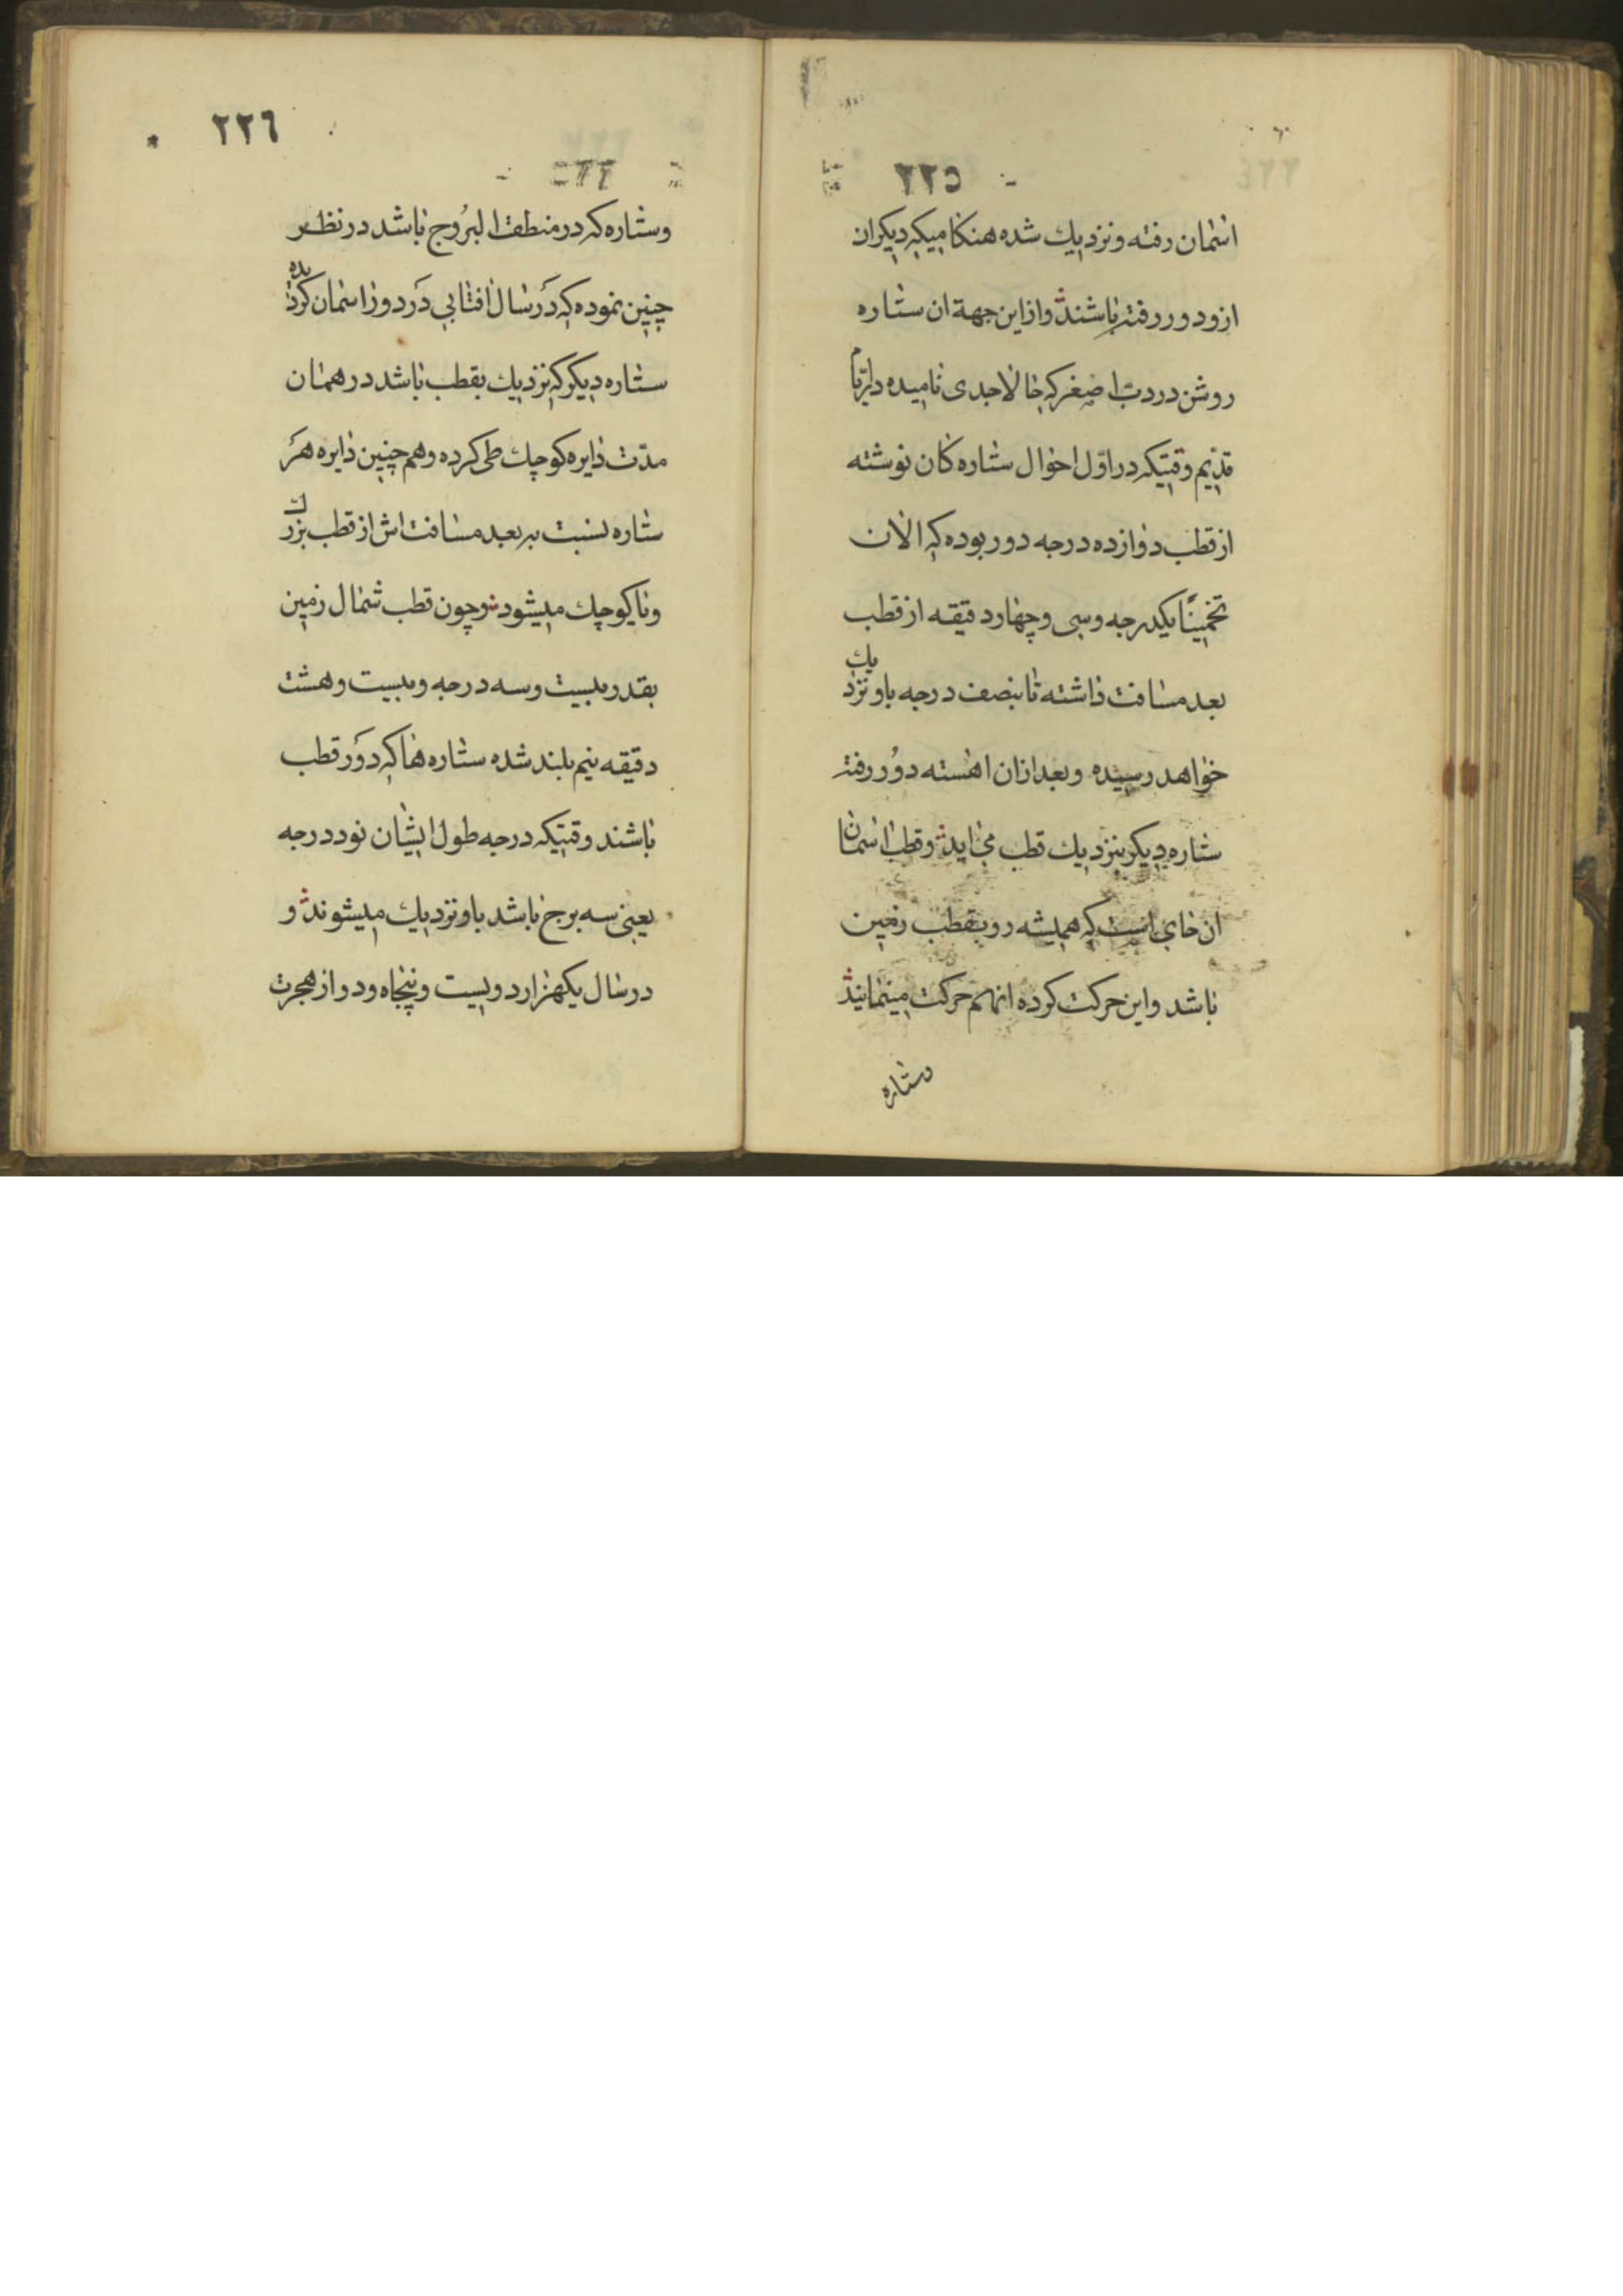 ٢٢٥
اسمان رفته و نزدیك شده هنكامیكه دیكران
ازو دور رفته باشند و از این جهة ان ستاره
روشن در دبّ اصغر كه حالا جدی نامیده در ایّام
قدیم وقتیكه در اوّل احوال ستاره كان نوشته
از قطب دوازده درجه دور بوده كه الان
تخمیناً یكدرجه و سی و چهار دقیقه از قطب
بعد مسافت داشته تا بنصف درجه باو نزدیك
خواهد رسیده و بعد ازان اهسته دوُر رفته
ستاره دیكر بنزدیك قطب می اید و قطب اسمان
ان جای است كه همیشه رو بقطب زمین
باشد و این حركت كرده انهم حركت مینمایند
وستاره
٢٢٦
وستاره كه در منطقة البرُوج باشد در نظر
چنین نموده كه دَر سال افتابی دَر دور اسمان كردیده
ستاره دیكر كه نزدیك بقطب باشد در همان
مدّت دایره كوچك طی كرده و هم چنین دایره هَر
ستاره نسبت به بعد مسافت اش از قطب بزرك
و یا كوچك میشود و چون قطب شمال زمین
بقدر بیست و سه درجه و بیست و هشت
دقیقه نیم بلند شده ستاره ها كه دَور قطب
باشند وقتیكه درجه طول ایشان نود درجه
یعنی سه برج باشد باو نزدیك میشوند و
در سال یكهزار دویست و پنجاه و دو از هجرت